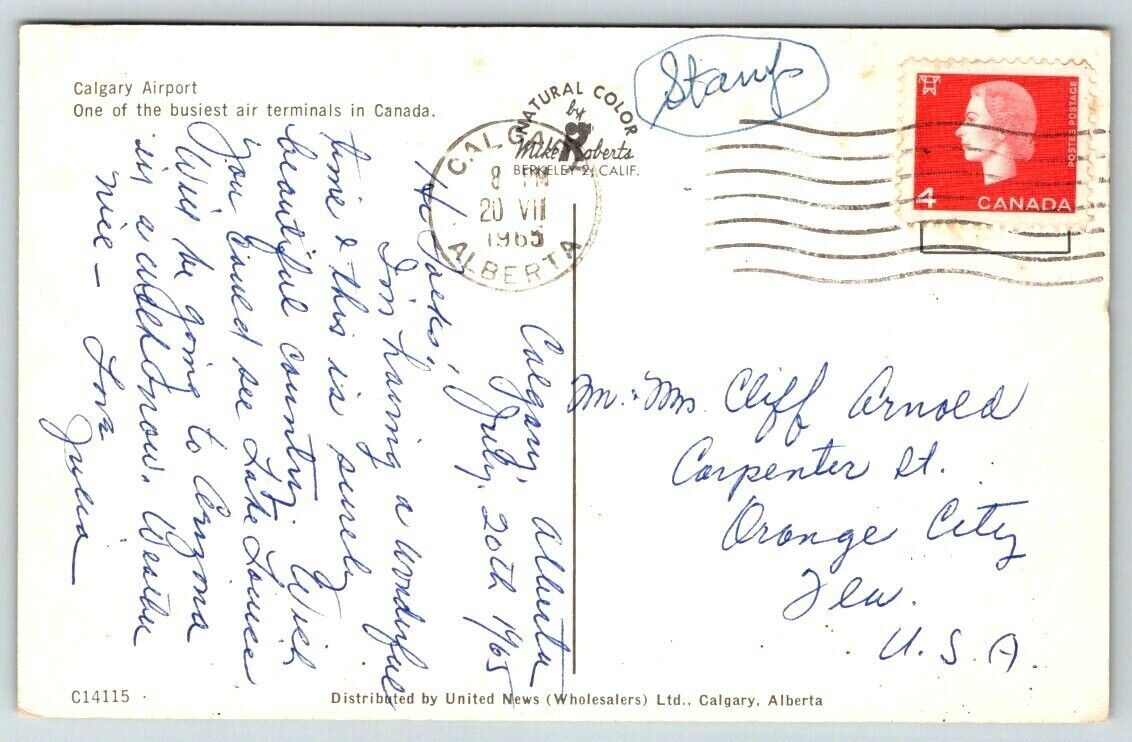 Calgary Airport
One of the busiest air terminals in Canada.
NATURAL COLOR
by
Mike Roberts
BERKELEY 2, CALIF.
Stamps
CALGARY
8 PM
20 VII
1965
ALBERTA
4 CANADA
POSTES POSTAGE
Calgary, Alberta
July. 20th 1965
Hi Folks,
I'm having a wonderful
time & this is surely
beautiful country. Wish
you could see Lake Louise
Will be going to
in a week now. Weather
nice – Love
Julia
Mr. & Mrs. Cliff Arnold
Carpenter St.
Orange City
Fla.
U.S.A.
C14115
Distributed by United News (Wholesalers) Ltd., Calgary, Alberta